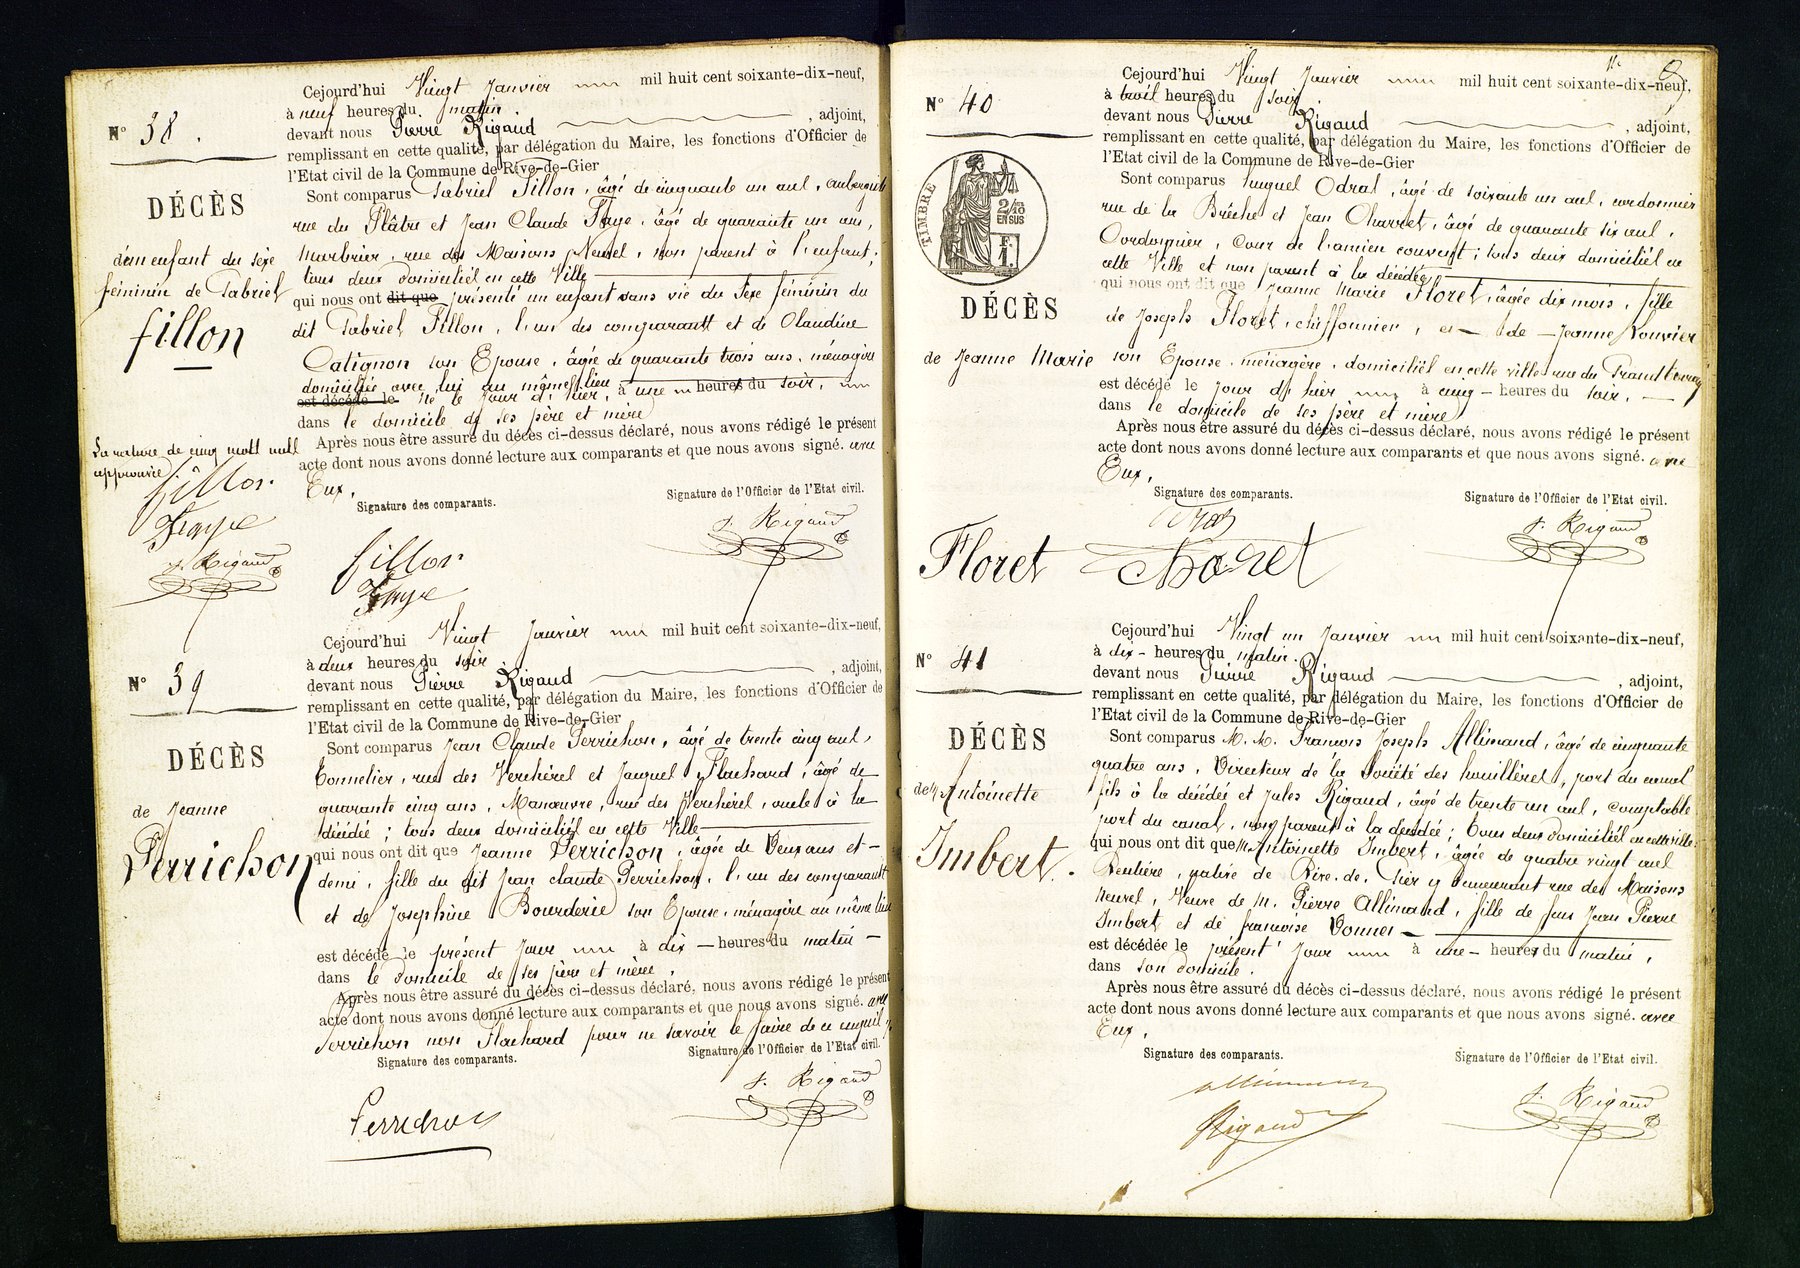 N° 38.
DÉCÈS
d'un enfant du sexe
féminin de Gabriel
fillon
La rature de cinq mots nuls
approuvée
fillon
Faye
P. Rigaud
Cejourd'hui Vingt Janvier mil huit cent soixante-dix-neuf,
à neuf heures du matin.
devant nous Pierre Rigaud , adjoint,
remplissant en cette qualité, par délégation du Maire, les fonctions d'Officier de
l'Etat civil de la Commune de Rive-de-Gier
Sont comparus Gabriel Fillon, âgé de cinquante un ans, aubergiste
rue du Plâtre et Jean Claude Faye, âgé de quarante un ans,
Marbrier, rue des Maisons Neuves, non parent à l'enfant;
tous deux domiciliés en cette Ville
qui nous ont dit que présenté un enfant sans vie du Sexe féminin du
dit Gabriel Fillon, l'un des comparants et de Claudine
Catignon son Epouse, âgée de quarante trois ans, ménagère
domiciliée avec lui au même lieu
est décédé le né le jour d'hier, à une heures du soir,
dans le domicile de ses père et mère
Après nous être assuré du décès ci-dessus déclaré, nous avons rédigé le présent
acte dont nous avons donné lecture aux comparants et que nous avons signé. avec
Eux,
Signature des comparants.
Signature de l'Officier de l'Etat civil.
P. Rigaud
fillon
Faye
N° 39
DÉCÈS
de Jeanne
Perrichon
Cejourd'hui Vingt Janvier mil huit cent soixante-dix-neuf,
à deux heures du soir
devant nous Pierre Rigaud , adjoint,
remplissant en cette qualité, par délégation du Maire, les fonctions d'Officier de
l'Etat civil de la Commune de Rive-de-Gier
Sont comparus Jean Claude Perrichon, âgé de trente cinq ans,
Tonnelier, rue des Verchères et Jacques Flachard, âgé de
quarante cinq ans, Manœuvre, rue des Verchères, oncle à la
décédée; tous deux domiciliés en cette Ville
qui nous ont dit que Jeanne Perrichon, âgée de Deux ans et
demi, fille du dit Jean claude Perrichon, l'un des comparants
et de Josephine Bourderie son Epouse, ménagère au même lieu
est décédé le présent Jour à dix heures du matin
dans le domicile de ses père et mère,
Après nous être assuré du décès ci-dessus déclaré, nous avons rédigé le présent
acte dont nous avons donné lecture aux comparants et que nous avons signé. avec
Perrichon non Flachard pour ne savoir le faire de ce enquis
Signature des comparants.
Signature de l'Officier de l'Etat civil.
P. Rigaud
Perrichon
9
N° 40
TIMBRE
2/10
EN SUS
F.
1.
DÉCÈS
de Jeanne Marie
Floret
Cejourd'hui Vingt Janvier mil huit cent soixante-dix-neuf,
à trois heures du soir.
devant nous Pierre Rigaud , adjoint,
remplissant en cette qualité, par délégation du Maire, les fonctions d'Officier de
l'Etat civil de la Commune de Rive-de-Gier
Sont comparus Odrat, âgé de soixante un ans, cordonnier
rue de la Brèche et Jean Charret, âgé de quarante six ans,
Cordonnier, Cour de l'ancien couvent; tous deux domiciliés en
cette Ville et non parent à la décédée
qui nous ont dit que Jeanne Marie Floret, âgée dix mois, fille
de Joseph Floret, chiffonnier, et de Jeanne Vouvier
son Epouse, ménagère, domiciliés en cette ville rue du
est décédé le jour d'hier à cinq heures du soir,
dans le domicile de ses père et mère
Après nous être assuré du décès ci-dessus déclaré, nous avons rédigé le présent
acte dont nous avons donné lecture aux comparants et que nous avons signé. avec
Eux,
Signature des comparants.
Signature de l'Officier de l'Etat civil.
Odrat
P. Rigaud
Charret
N° 41
DÉCÈS
de M. Antoinette
Imbert.
Cejourd'hui Vingt un Janvier mil huit cent soixante-dix-neuf,
à dix heures du matin.
devant nous Pierre Rigaud , adjoint,
remplissant en cette qualité, par délégation du Maire, les fonctions d'Officier de
l'Etat civil de la Commune de Rive-de-Gier
Sont comparus M. M. Francois Joseph Allimand, âgé de cinquante
quatre ans, Directeur de la Société des houillères, port du canal
fils à la décédée et Jules Rigaud, âgé de trente un ans, comptable
port du canal, non parent à la décédée; Tous deux domiciliés en cette ville.
qui nous ont dit que M. Antoinette Imbert, âgée de quatre vingt ans
Rentière, native de Rive-de-Gier y demeurant rue des Maisons
neuves, Veuve de M. Pierre Allimand, fille de feus Jean Pierre
Imbert et de françoise Vonner
est décédée le présent Jour à une heures du matin,
dans son domicile.
Après nous être assuré du décès ci-dessus déclaré, nous avons rédigé le présent
acte dont nous avons donné lecture aux comparants et que nous avons signé. avec
Eux,
Signature des comparants.
Signature de l'Officier de l'Etat civil.
Allimand
P. Rigaud
Rigaud